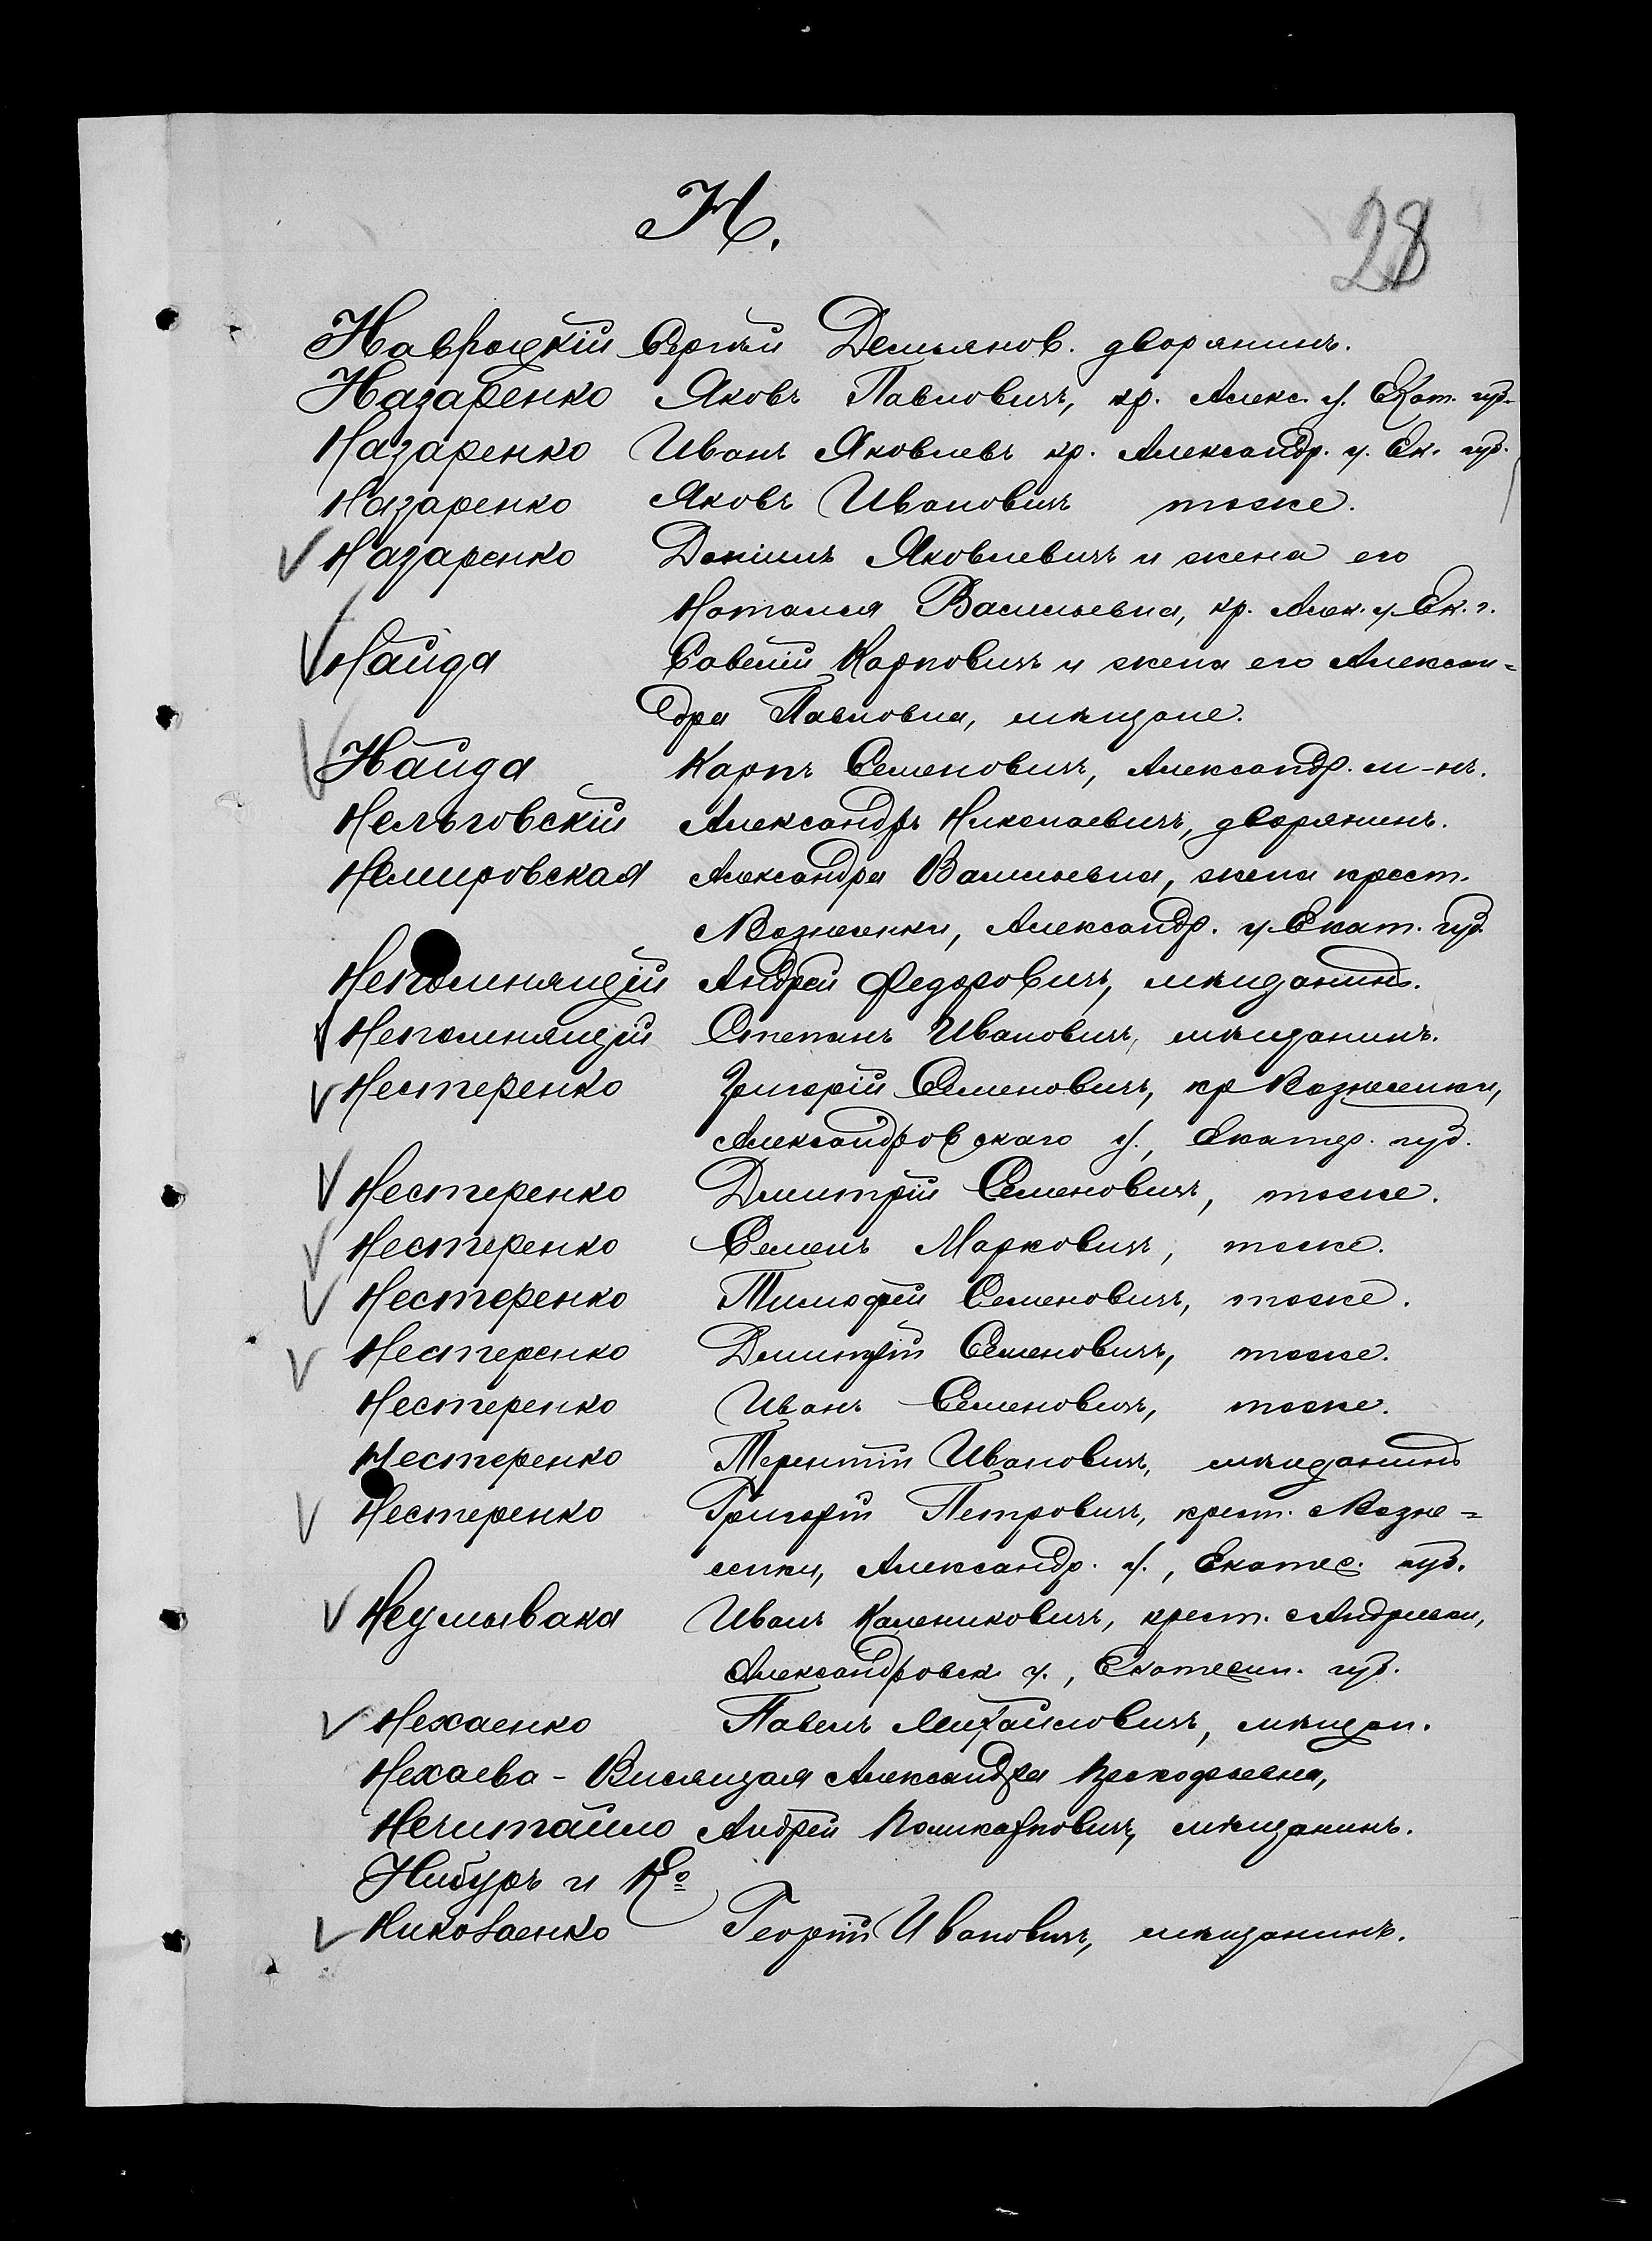 Н.
28
Наврацкій Сергѣй Демьянов. дворянинъ.
Назаренко Яковъ Павловичъ, кр. Алекс. у. Екат. губ.
Назаренко Иванъ Яковлевъ кр. Александр. у. Ек. губ.
Назаренко Яковъ Ивановичъ тоже.
Назаренко Даніилъ Яковлевичъ и жена его
Наталия Васильевна, кр. Алек. у. Ек. г.
Найда Савелій Карповичъ и жена его Алексан=
дра Павловна, мѣщане.
Найда Карпъ Семеновичъ, Александр. м-нъ.
Нельговскій Александръ Николаевичъ, дворянинъ.
Немировская Александра Васильевна, жена крест.
Вознесенки, Александр. у. Екат. губ.
Непомнящій Андрей Федоровичъ, мѣщанинъ.
Непомнящій Степанъ Ивановичъ, мѣщанинъ.
Нестеренко Григорій Семеновичъ, кр Вознесенки,
Александровскаго у., Екатер. губ.
Нестеренко Дмитрій Семеновичъ, тоже.
Нестеренко Семенъ Марковичъ, тоже.
Нестеренко Тимофей Семеновичъ, тоже.
Нестеренко Дмитрій Семеновичъ, тоже.
Нестеренко Иванъ Семеновичъ, тоже.
Нестеренко Терентій Ивановичъ, мѣщанинъ
Нестеренко Григорій Петровичъ, крест. Возне=
сенки, Александр. у., Екатер. губ.
Неумывака Иванъ Калениковичъ, крест. Андреевки,
Александровск. у., Екатерин. губ.
Нехаенко Павелъ Михайловичъ, мѣщан.
Нехаева - Висящая Александра Прокофьевна,
Нечитайло Андрей Поликарповичъ, мѣщанинъ.
Нибуръ и Ко
Николаенко Георгій Ивановичъ, мѣщанинъ.